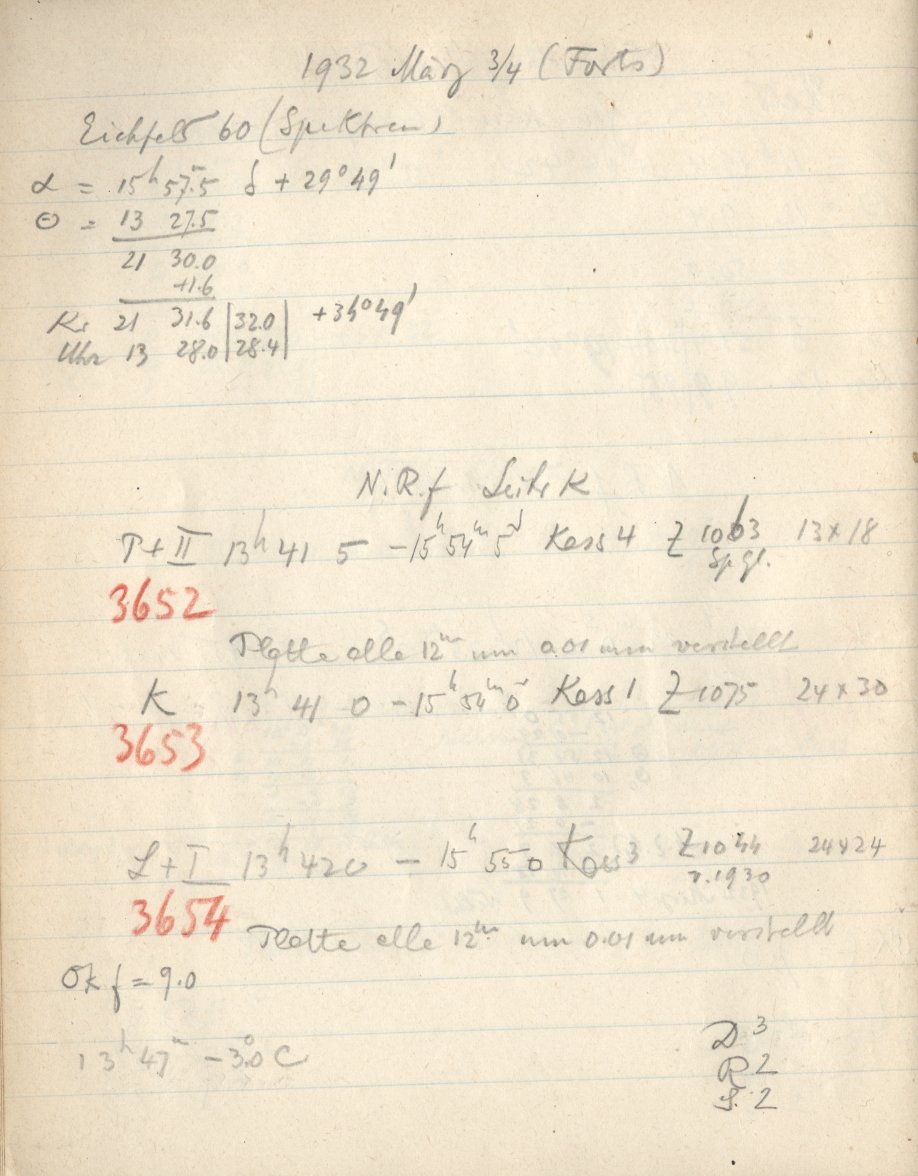 1932 März 3/4 (Forts)
Eichfeld 60 (Spektren)
α = 15h 57m.5 δ + 29° 49'
Θ = 13 27.5
21 30.0
+1.6
Kr 21 31.6 | 32.0 | +34° 49'
Uhr 13 28.0 | 28.4 |
N.R.f Leitr K
T + II 13h 41 5 – 15h 54m 5s Kass 4 Z 1063 13 x 18
Spgl.
3652
Platte alle 12m um 0.01 mm verstellt
K 13h 41 0 – 15h 54m 0s Kass 1 Z 1075 24 x 30
3653
L + I 13h 42 0 – 15h 55 0 Kass 3 Z 1044 24 x 24
v. 1930
3654
Platte alle 12m um 0.01 mm verstellt
Ok f = 9.0
13h 47m – 3°.0 C
D 3
R 2
S. 2